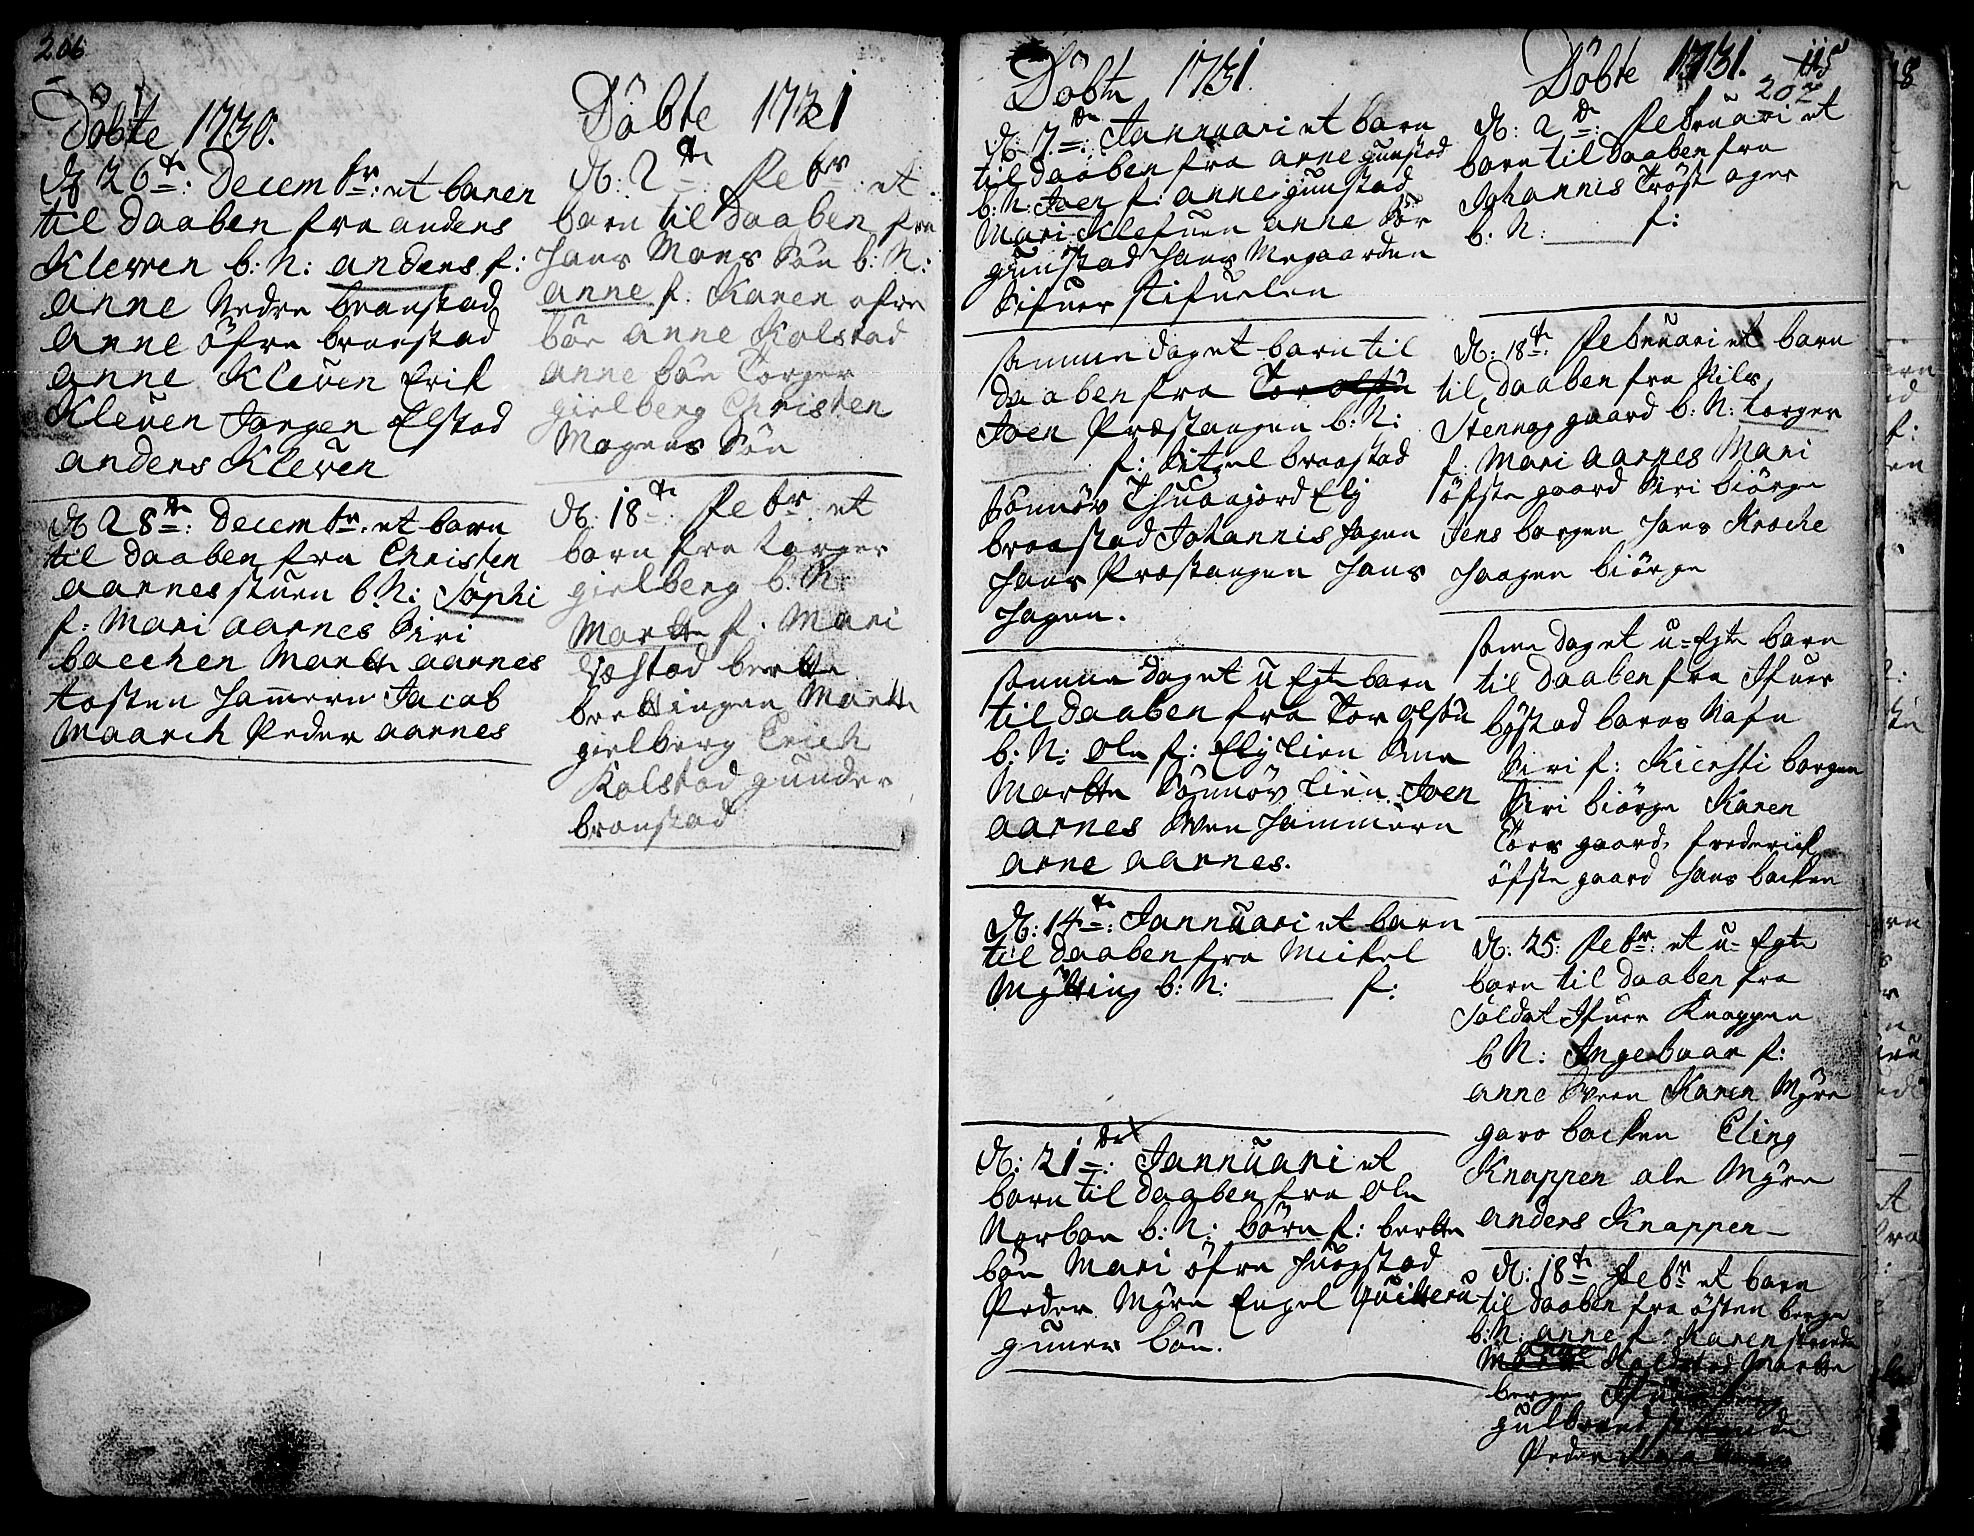 206
Döbte 1730.
d 26de: Decembr: et baren
til daaben fra anders
Kleven b: N: anders f:
anne Nedre braastad
anne öfre braastad
anne Kleven Erik
Kleven Jorgen Elstad
anders Kleven
d 28de: Decembr: et barn
til daaben fra Christen
aarnes stuen b: N: Sophi
f: Mari aarnes Siri
bacchen Marte aarnes
tosten hammern Jacob
Maarch Peder aarnes
Döbte 1731
d: 2de: Febr: et
barn til daaben fra
hans Mons Sön b: N:
anne f: Karen ofre
bön anne Kolstad
anne bön Torger
gielberg Christen
Mogens Sön
d: 18de: Febr: et
barn fra torger
gielberg b: N:
Marte f: Mari
berte
brettingen Marte
gielberg Erich
Kolstad gunder
braastad
Döbte 1731.
d: 7de: Jannuari et barn
til daaben fra arne gunstad
b: N: Joen f: anne gunstad
Mari Klefuen anne
gunstad hans Megaarden
Sifuer stifuelen
samme dag et barn til
daaben fra Tor olsön
Joen Præstangen b: N:
f: Sitzel braastad
Sönnöv Thuaajord Elj
braastad Johannis hagen
hans Præstangen hans
hagen.
samme dag et u Egte barn
til daaben fra Tor olsön
b: N: ole f: Elj Lien
Marte Sönnöv Lien Joen
aarnes Sven hammern
arne aarnes.
d: 14de: Jannuari et barn
til daaben fra Mickel
Mytting b: N: ____ f:
d: 21de: Jannuari et
barn til daaben fra ole
Norboe b: N: börn f: berte
bön Mari öfre huogstad
Peder Myre Engel
gunner bön.
Döbte 1731. 115
207
d: 2de: Februari et
barn til daaben fra
Johannis Tröst ager
b: N: ____ f:
d: 18de: Februari et barn
til daaben fra Nils
Stenngaard b: N: torger
f: Mari aarnes Mari
öfste gaard Siri biörge
Jens borgen hans Kroche
haagen biörge
same dag et u-Egte barn
til daaben fra Ifuer
bystad barns Nafn
Siri f: Kiersti borgen
Siri biörge Karen
Tors gaard, frederik
öfste gaard hans backen
d: 25: Febr: et u-Egte
barn til daaben fra
Soldat Ifuer Knappen
b N: Ingeboar f:
anne Sveen Karen Myre
garo backen Eling
Knappen ole Myre
anders Knappen
d: 18de Febr et barn
til daaben fra östen berge
b: N: anne f: Karen
Kolstad Marte
berge
gulbrand
Peder